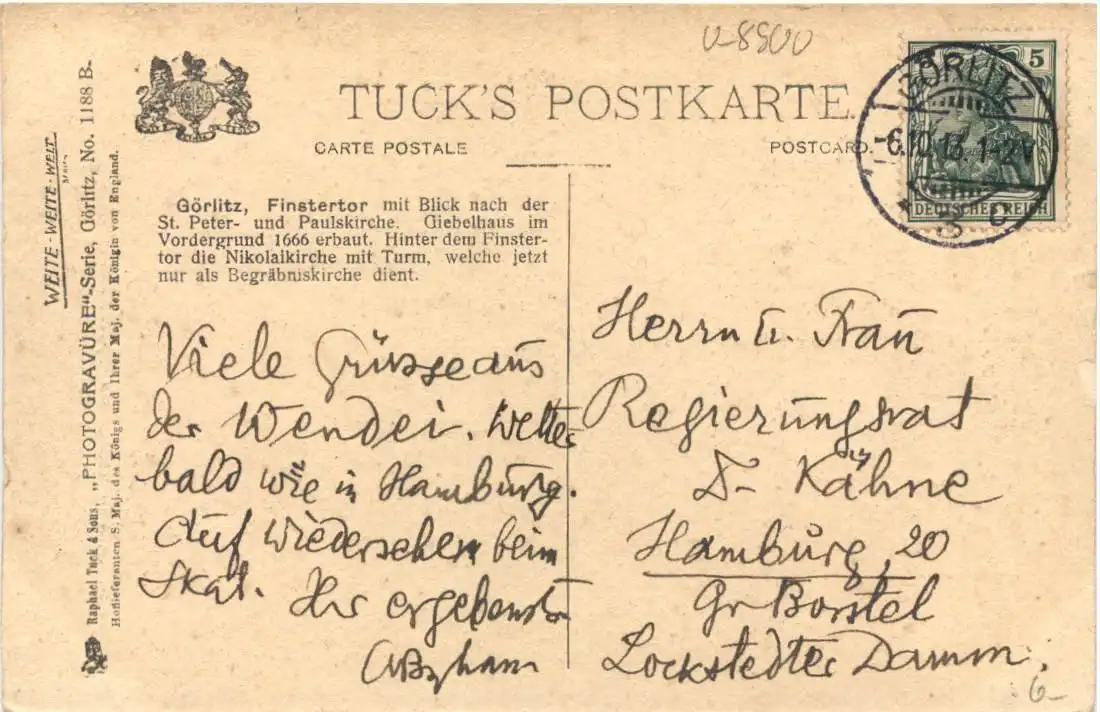 U-8900
WEITE-WEITE-WELT
Raphael Tuck & Sons, „PHOTOGRAVÜRE"-Serie, Görlitz, No. 1188 B.
Hoflieferanten S. Maj. des Königs und Ihrer Maj. der Königin von England.
TUCK'S POSTKARTE.
CARTE POSTALE
POSTCARD.
5
GÖRLITZ
-6.10.13.1-2V
DEUTSCHES REICH
* 3 c
Görlitz, Finstertor mit Blick nach der
St. Peter- und Paulskirche. Giebelhaus im
Vordergrund 1666 erbaut. Hinter dem Finster-
tor die Nikolaikirche mit Turm, welche jetzt
nur als Begräbniskirche dient.
Viele Grüsse aus
der Wendei. Wetter
bald wie in Hamburg.
Auf Wiedersehen beim
Skat. Ihr ergebenster
Herrn u. Frau
Regierungsrat
Dr Kähne
Hamburg, 20
Gr Borstel
Lockstedter Damm.
6-